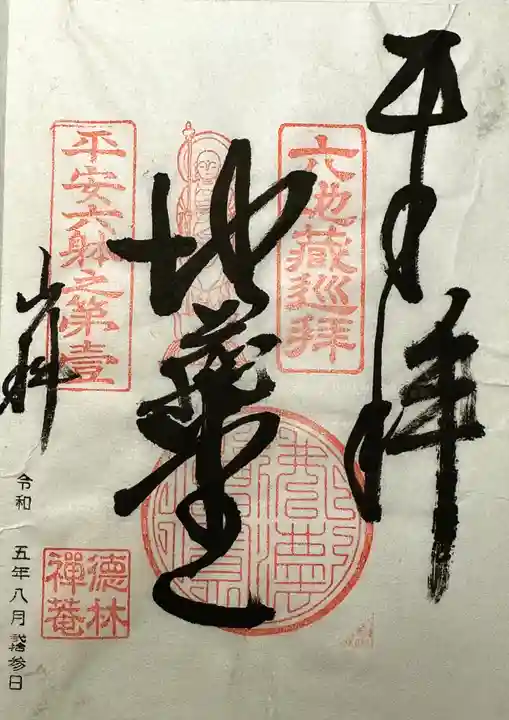 奉拝
六地蔵巡拝
地蔵堂
平安六躰之第壹
山科
徳林
禅菴
令和 五年八月弐拾参日